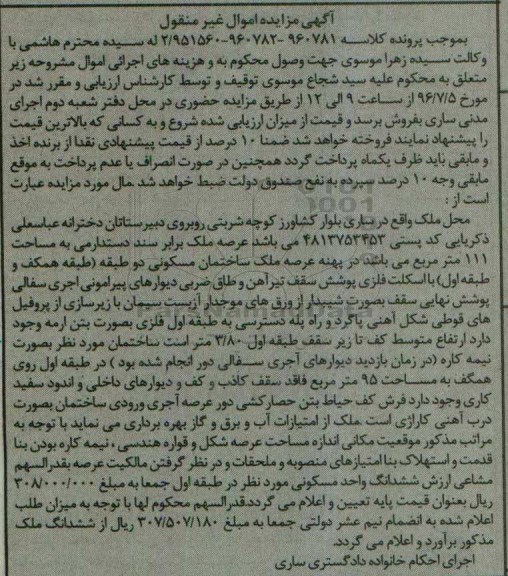 آگهی مزایده اموال غیر منقول
بموجب پرونده کلاسه ۹۶۰۷۸۱ -۹۶۰۷۸۲-۲/۹۵۱۵۶۰ له سیده محترم هاشمی با
وکالت سیده زهرا موسوی جهت وصول محکوم به و هزینه های اجرائی اموال مشروحه زیر
متعلق به محکوم علیه سید شجاع موسوی توقیف و توسط کارشناس ارزیابی و مقرر شد در
مورخ ۹۶/۷/۵ از ساعت ۹ الی ۱۲ از طریق مزایده حضوری در محل دفتر شعبه دوم اجرای
مدنی ساری بفروش برسد و قیمت از میزان ارزیابی شده شروع و به کسانی که بالاترین قیمت
را پیشنهاد نمایند فروخته خواهد شد ضمنا ۱۰ درصد از قیمت پیشنهادی نقدا از برنده اخذ
و مابقی باید ظرف یکماه پرداخت گردد همچنین در صورت انصراف یا عدم پرداخت به موقع
مابقی وجه ۱۰ درصد سپرده به نفع صندوق دولت ضبط خواهد شد .مال مورد مزایده عبارت
است از :
محل ملک واقع در ساری بلوار کشاورز کوچه شربتی روبروی دبیرستاتان دخترانه عباسعلی
ذکریایی کد پستی ۴۸۱۳۷۵۳۴۵۳ می باشد عرصه ملک برابر سند دستدارمی به مساحت
۱۱۱ متر مربع می باشد در پهنه عرصه ملک ساختمان مسکونی دو طبقه (طبقه همکف و
طبقه اول) با اسکلت فلزی پوشش سقف تیرآهن و طاق ضربی دیوارهای پیرامونی اجری سفالی
پوشش نهایی سقف بصورت شیبدار از ورق های موجدار آزبست سیمان با زیرسازی از پروفیل
های قوطی شکل آهنی پاگرد و راه پله دسترسی به طبقه اول فلزی بصورت بتن ارمه وجود
دارد ارتفاع متوسط کف تا زیر سقف طبقه اول ۳/۸۰ متر است ساختمان مورد نظر بصورت
نیمه کاره (در زمان بازدید دیوارهای آجری سفالی دور انجام شده بود ) در طبقه اول روی
همگف به مساحت ۹۵ متر مربع فاقد سقف کاذب و کف و دیوارهای داخلی و اندود سفید
کاری وجود دارد فرش کف حیاط بتن حصارکشی دور عرصه آجری ورودی ساختمان بصورت
درب آهنی کاراژی است .ملک از امتیازات آب و برق و گاز بهره برداری می نماید با توجه به
مراتب مذکور موقعیت مکانی اندازه مساحت عرصه شکل و قواره هندسی ، نیمه کاره بودن بنا
قدمت و استهلاک بنا امتیازهای منصوبه و ملحقات و در نظر گرفتن مالکیت عرصه بقدرالسهم
مشاعی ارزش ششدانگ واحد مسکونی مورد نظر در طبقه اول جمعا به مبلغ ۳۰۸/۰۰۰/۰۰۰
ریال بعنوان قیمت پایه تعیین و اعلام می گردد.قدرالسهم محکوم لها با توجه به میزان طلب
اعلام شده به انضمام نیم عشر دولتی جمعا به مبلغ ۳۰۷/۵۰۷/۱۸۰ ریال از ششدانگ ملک
مذکور برآورد و اعلام می گردد.
اجرای احکام خانواده دادگستری ساری